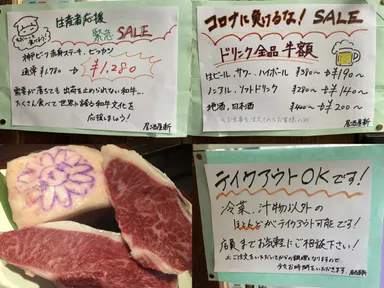 生産者応援
緊急 SALE
通常 ¥1,780 → ¥1,280
需要が落ちても、出荷を止められない和牛…
たくさん食べて世界に誇る和牛文化を
応援しましょう!
居酒屋新
コロナに負けるな! SALE
ドリンク全品半額
生ビール、サワー、ハイボール ¥380〜 → ¥190〜
ノンアル、ソフトドリンク ¥280〜 → ¥140〜
地酒、日本酒 ¥400〜 → ¥200〜
居酒屋新
テイクアウトOKです!
冷菜、汁物以外の
ほとんどがテイクアウト可能です!
店員までお気軽にご相談下さい!
少々お時間をいただきます。
居酒屋新